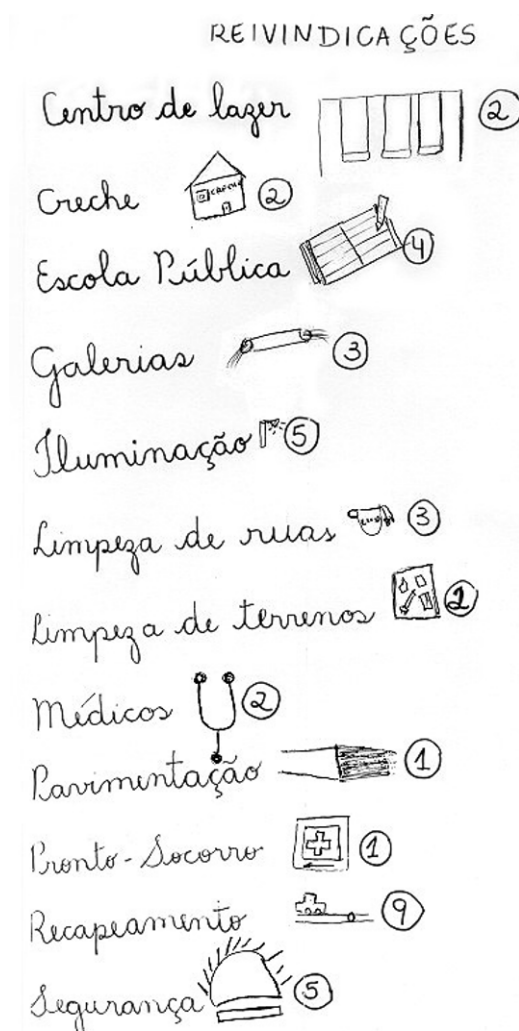 REIVINDICAÇÕES
Centro de lazer 2
Creche 2
Escola Pública 4
Galerias 3
Iluminação 5
Limpeza de ruas 3
Limpeza de terrenos
Médicos 2
Pavimentação 1
Pronto-Socorro 1
Recapeamento 9
Segurança 5